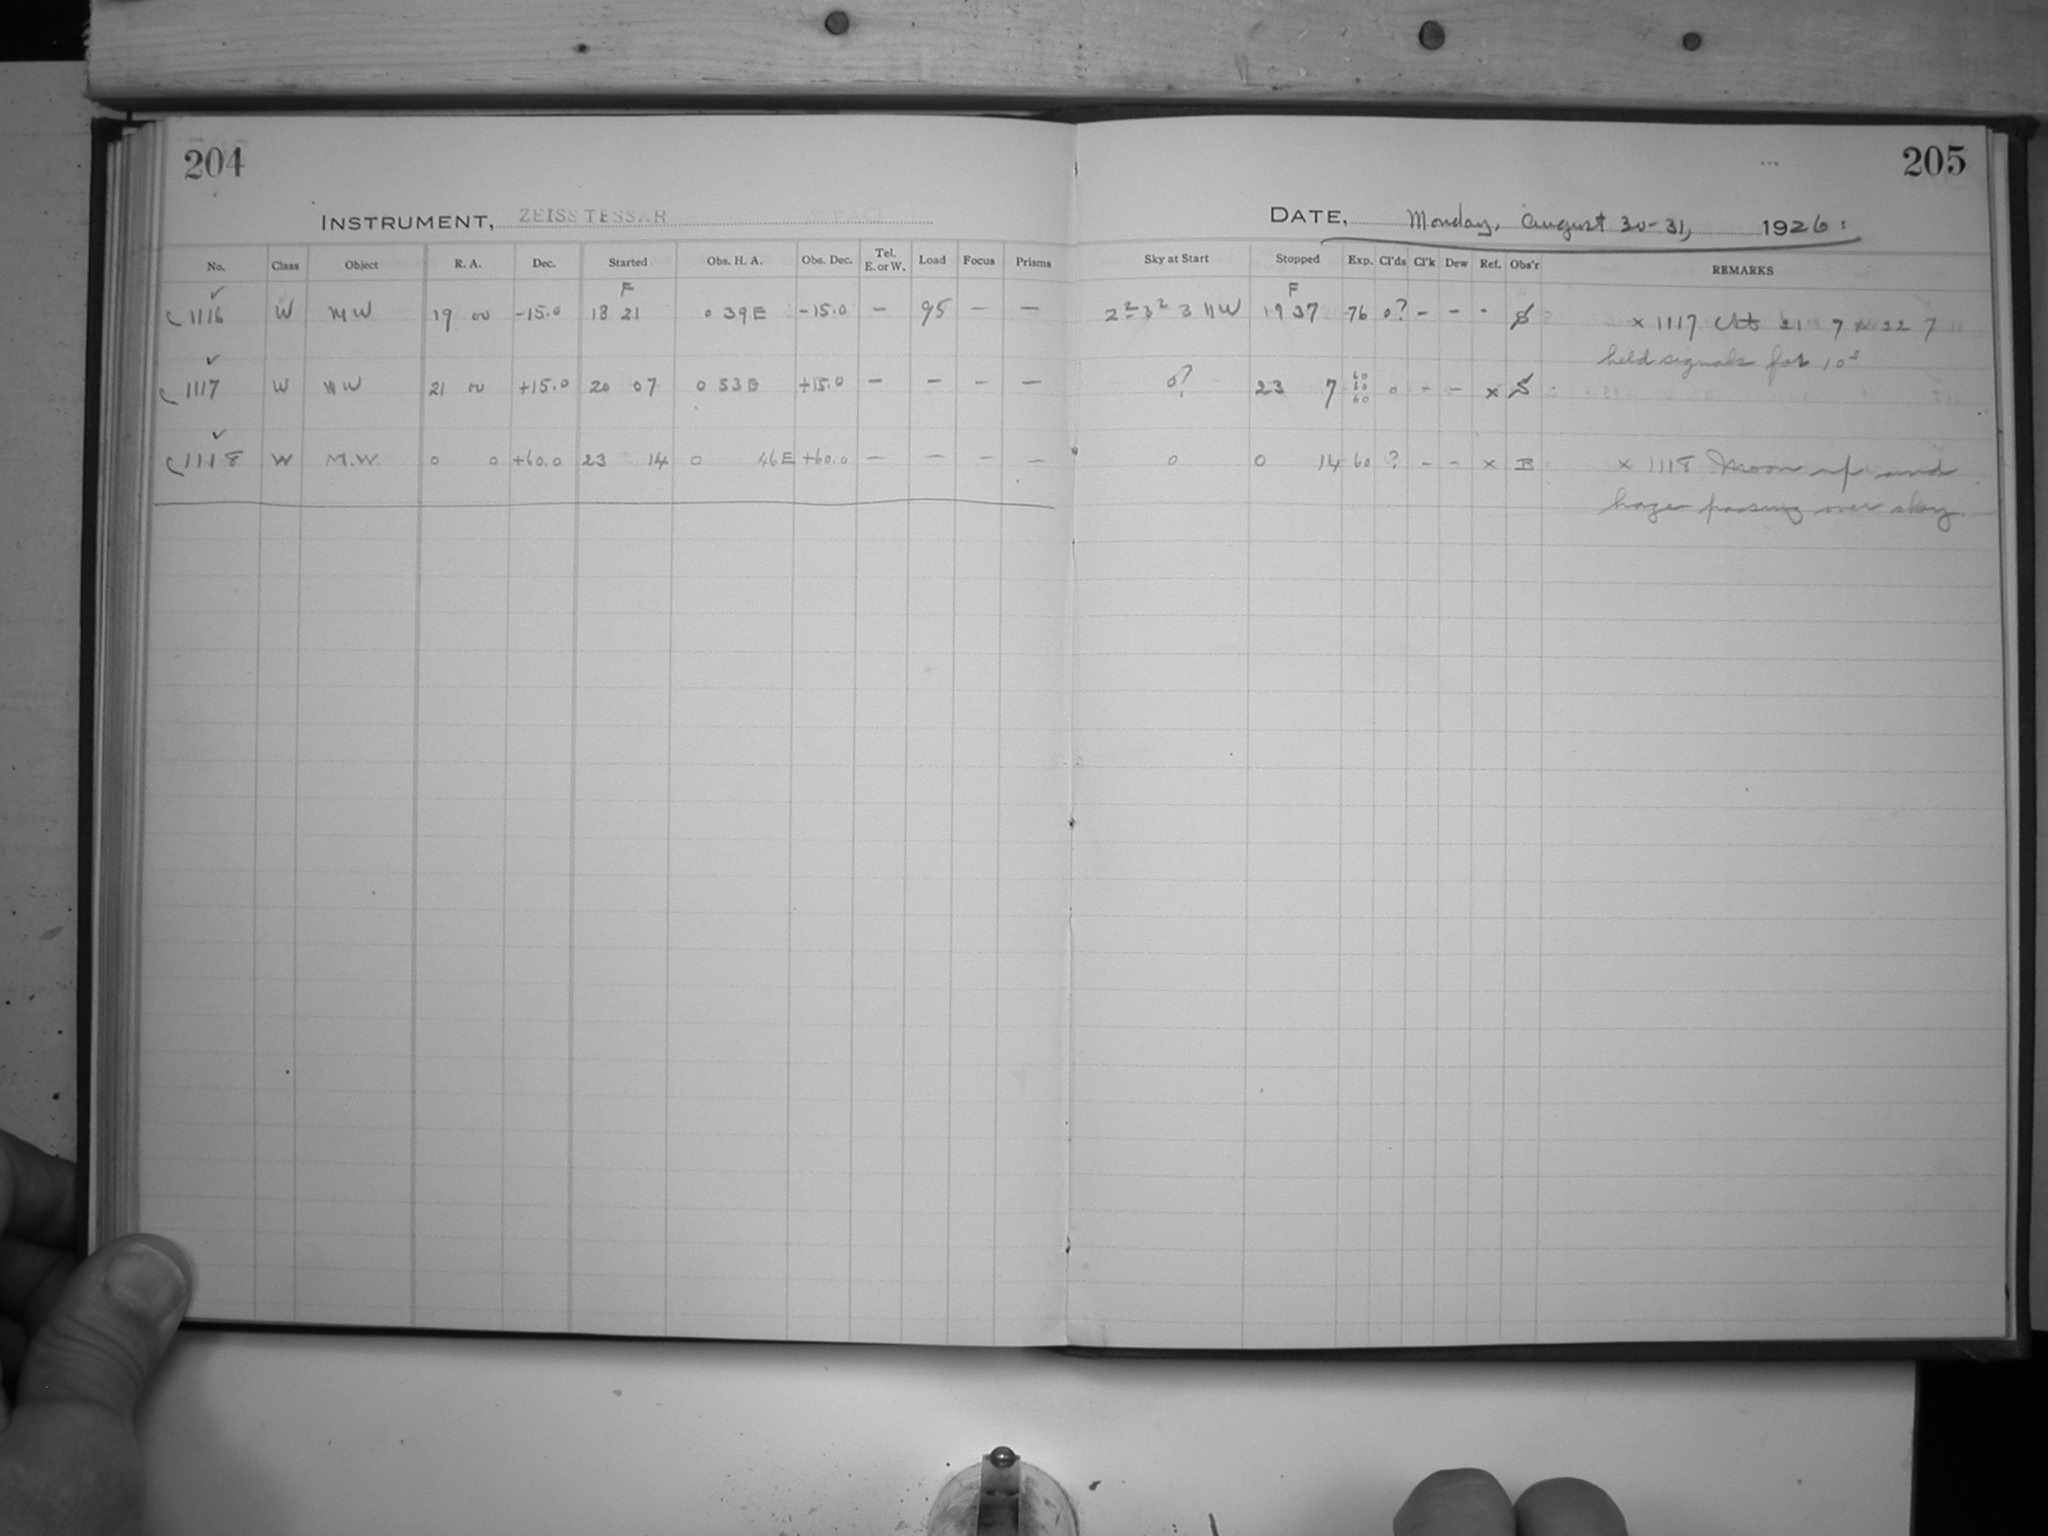 204
205
INSTRUMENT, ZEISS TESSAR
DATE, Monday, August 30-31, 1926:
No. Class Object R. A. Dec. Started Obs. H. A. Obs. Dec. Tel. E. or W. Load Focus Prisms Sky at Start Stopped Exp. Cl'ds Cl'k Dew Ref. Obs'r REMARKS
✓ F F
1116 W MW 19 00 -15.0 18 21 0 39E -15.0 - 95 - - 19 37 76 0? - - - S × 1117 At 21 7 & 22 7
✓ held signals for 10s
1117 W MW 21 00 +15.0 20 07 0 53E +15.0 - - - - 0? 23 7 60 60 60 0 - - × S
✓
1118 W M.W. 0 0 +60.0 23 14 0 46E +60.0 - - - - 0 0 14 60 ? - - × B × 1118 Moon up and
haze passing over sky